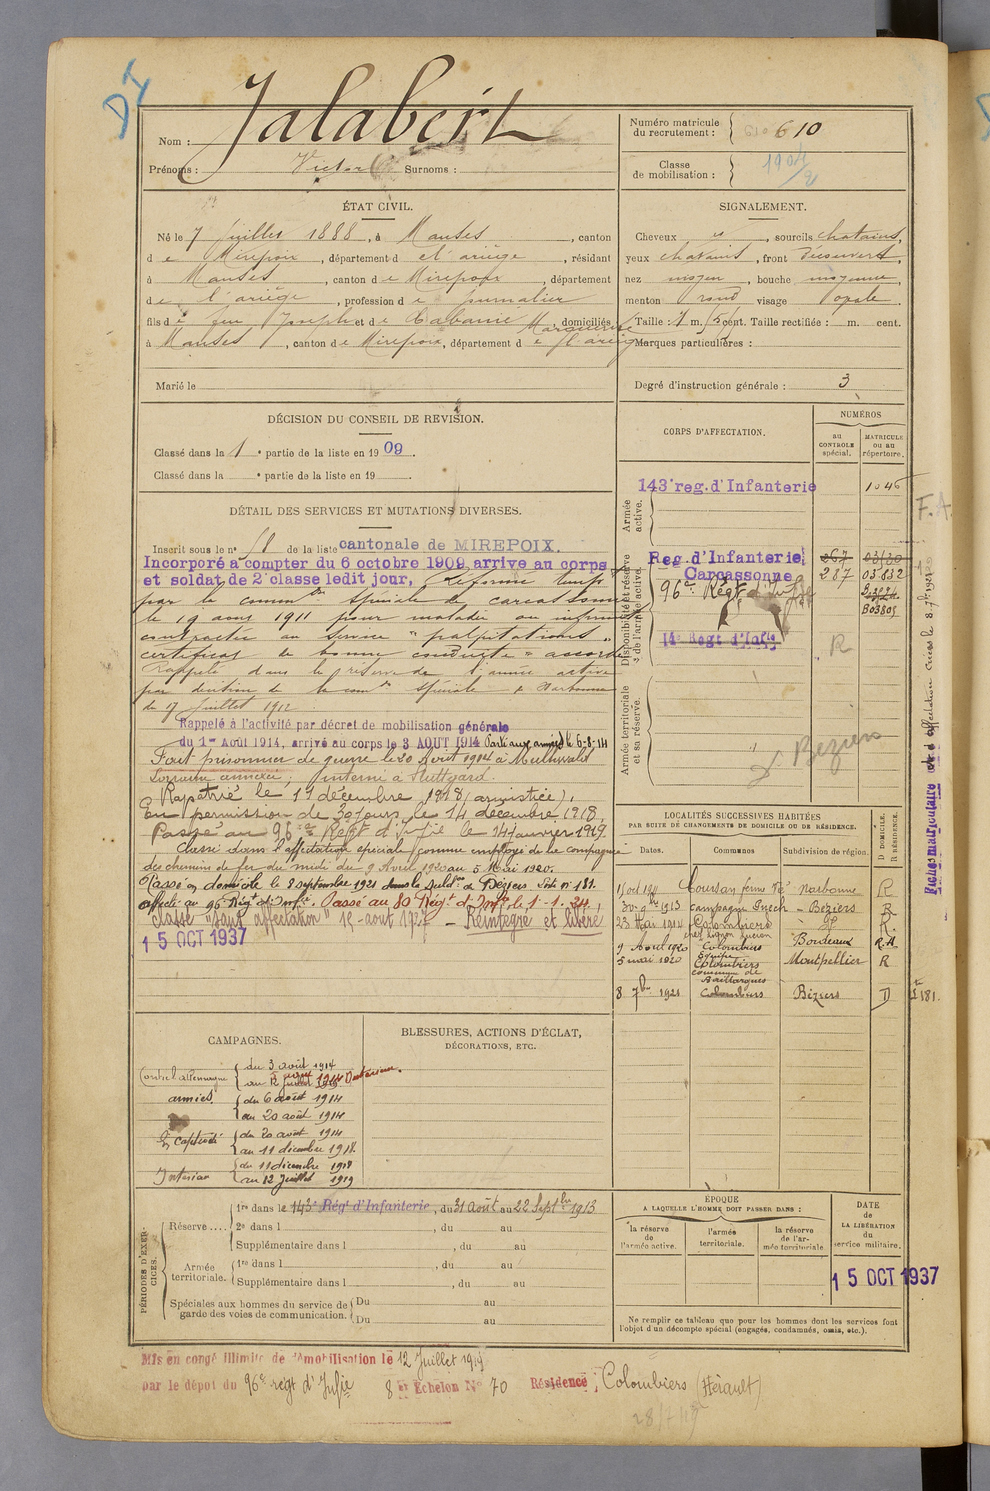 DI
Nom : Jalabert
Prénoms : Victor Surnoms :
Numéro matricule du recrutement : 610
Classe de mobilisation : 1904/2
ÉTAT CIVIL.
Né le 7 juillet 1888, à Manses, canton
de Mirepoix, département de l'ariège, résidant
à Manses, canton de Mirepoix, département
de l'ariège, profession de journalier
fils de feu Joseph et de Cabanié Marguerite, domiciliés
à Manses, canton de Mirepoix, département de l'ariège
Marié le
SIGNALEMENT.
Cheveux, sourcils chatains,
yeux chatains, front découvert,
nez moyen, bouche moyenne,
menton rond visage ovale.
Taille : 1 m. cent. Taille rectifiée : m. cent.
Marques particulières :
Degré d'instruction générale : 3
DÉCISION DU CONSEIL DE REVISION.
Classé dans la 1e partie de la liste en 1909.
Classé dans la e partie de la liste en 19 .
DÉTAIL DES SERVICES ET MUTATIONS DIVERSES.
Inscrit sous le n° 58 de la liste cantonale de MIREPOIX.
Incorporé à compter du 6 octobre 1909, arrivé au corps
et soldat de 2e classe ledit jour, Réformé temp.
par la comm.on spéciale de carcassonne
le 19 aout 1911 pour maladie ou infirmité
contractée au service " palpitations "
certificat de bonne conduite " accordé
Rappelé dans la réserve de l'armée active
par décision de la com.on spéciale de Narbonne
de 9 juillet 1912
Rappelé à l'activité par décret de mobilisation générale
du 1er Août 1914, arrivé au corps le 3 AOUT 1914 Parti aux armées le 6-8-14
Fait prisonnier de guerre le 20 Août 1914 à Mulhwald
Lorraine annexée, interné à Stuttgard.
Rapatrié le 11 décembre 1918 (armistice).
En permission de 30 jours le 14 décembre 1918.
Passé au 96me Régt d'Infie le 14 janvier 1919.
Classé dans l'affectation spéciale comme employé de la compagnie
des chemins de fer du midi du 9 Avril 1920 au 5 Mai 1920.
Classé en domicile le 8 septembre 1921 dans la subdon de Béziers Liste n° 181.
affecté au 96e Régt d'Infie. Passé au 80e Régt d'Infie le 1-1-24.
Classé "sans affectation" 15-aout 1927 – Réintégré et libéré
15 OCT 1937
CORPS D'AFFECTATION.
NUMÉROS
AU CONTROLE spécial.
MATRICULE ou au répertoire.
Armée active.
143e reg. d'Infanterie 1046
Disponibilité et réserve de l'armée active.
Reg. d'Infanterie 267 03/30
Carcassonne 287 03632
96e Régt d'Infie
B03805
14e Régt d'Infie
R
Armée territoriale et sa réserve.
Béziers
F.A.
LOCALITÉS SUCCESSIVES HABITÉES
PAR SUITE DE CHANGEMENTS DE DOMICILE OU DE RÉSIDENCE.
Dates. Communes Subdivision de région. D DOMICILE. R RÉSIDENCE.
Coursan Narbonne R
1913 campagne Guech – Béziers R
23 Mai 1914 Colombiers R.
chez Lignon Lucien
9 Avril 1920 Colombiers Bordeaux R.A
5 mai 1920 Colombiers Montpellier R
commune de Baillargues
8 7bre 1921 Colombiers Béziers D
181.
CAMPAGNES.
Contre l'allemagne
du 3 août 1914
armées.
du 6 août 1914
au 20 août 1914
En captivité
du 20 août 1914
au 11 décembre 1918.
Intérieur
du 11 décembre 1918
au 12 Juillet 1919
BLESSURES, ACTIONS D'ÉCLAT,
DÉCORATIONS, ETC.
PÉRIODES D'EXERCICES.
Réserve ....
1re dans le 143e Régt d'Infanterie, du 31 août au 22 Septbre 1913
2e dans l , du au
Supplémentaire dans l , du au
Armée territoriale.
1re dans l , du au
Supplémentaire dans l , du au
Spéciales aux hommes du service de garde des voies de communication.
Du au
Du au
ÉPOQUE
A LAQUELLE L'HOMME DOIT PASSER DANS :
la réserve de l'armée active.
l'armée territoriale.
la réserve de l'armée territoriale.
DATE de LA LIBÉRATION du service militaire.
15 OCT 1937
Ne remplir ce tableau que pour les hommes dont les services font
l'objet d'un décompte spécial (engagés, condamnés, omis, etc.).
Mis en congé illimité de démobilisation le 12 Juillet 1919
par le dépôt du 96e régt d'Infie 8e Echelon N° 70 Résidence : Colombiers (Hérault)